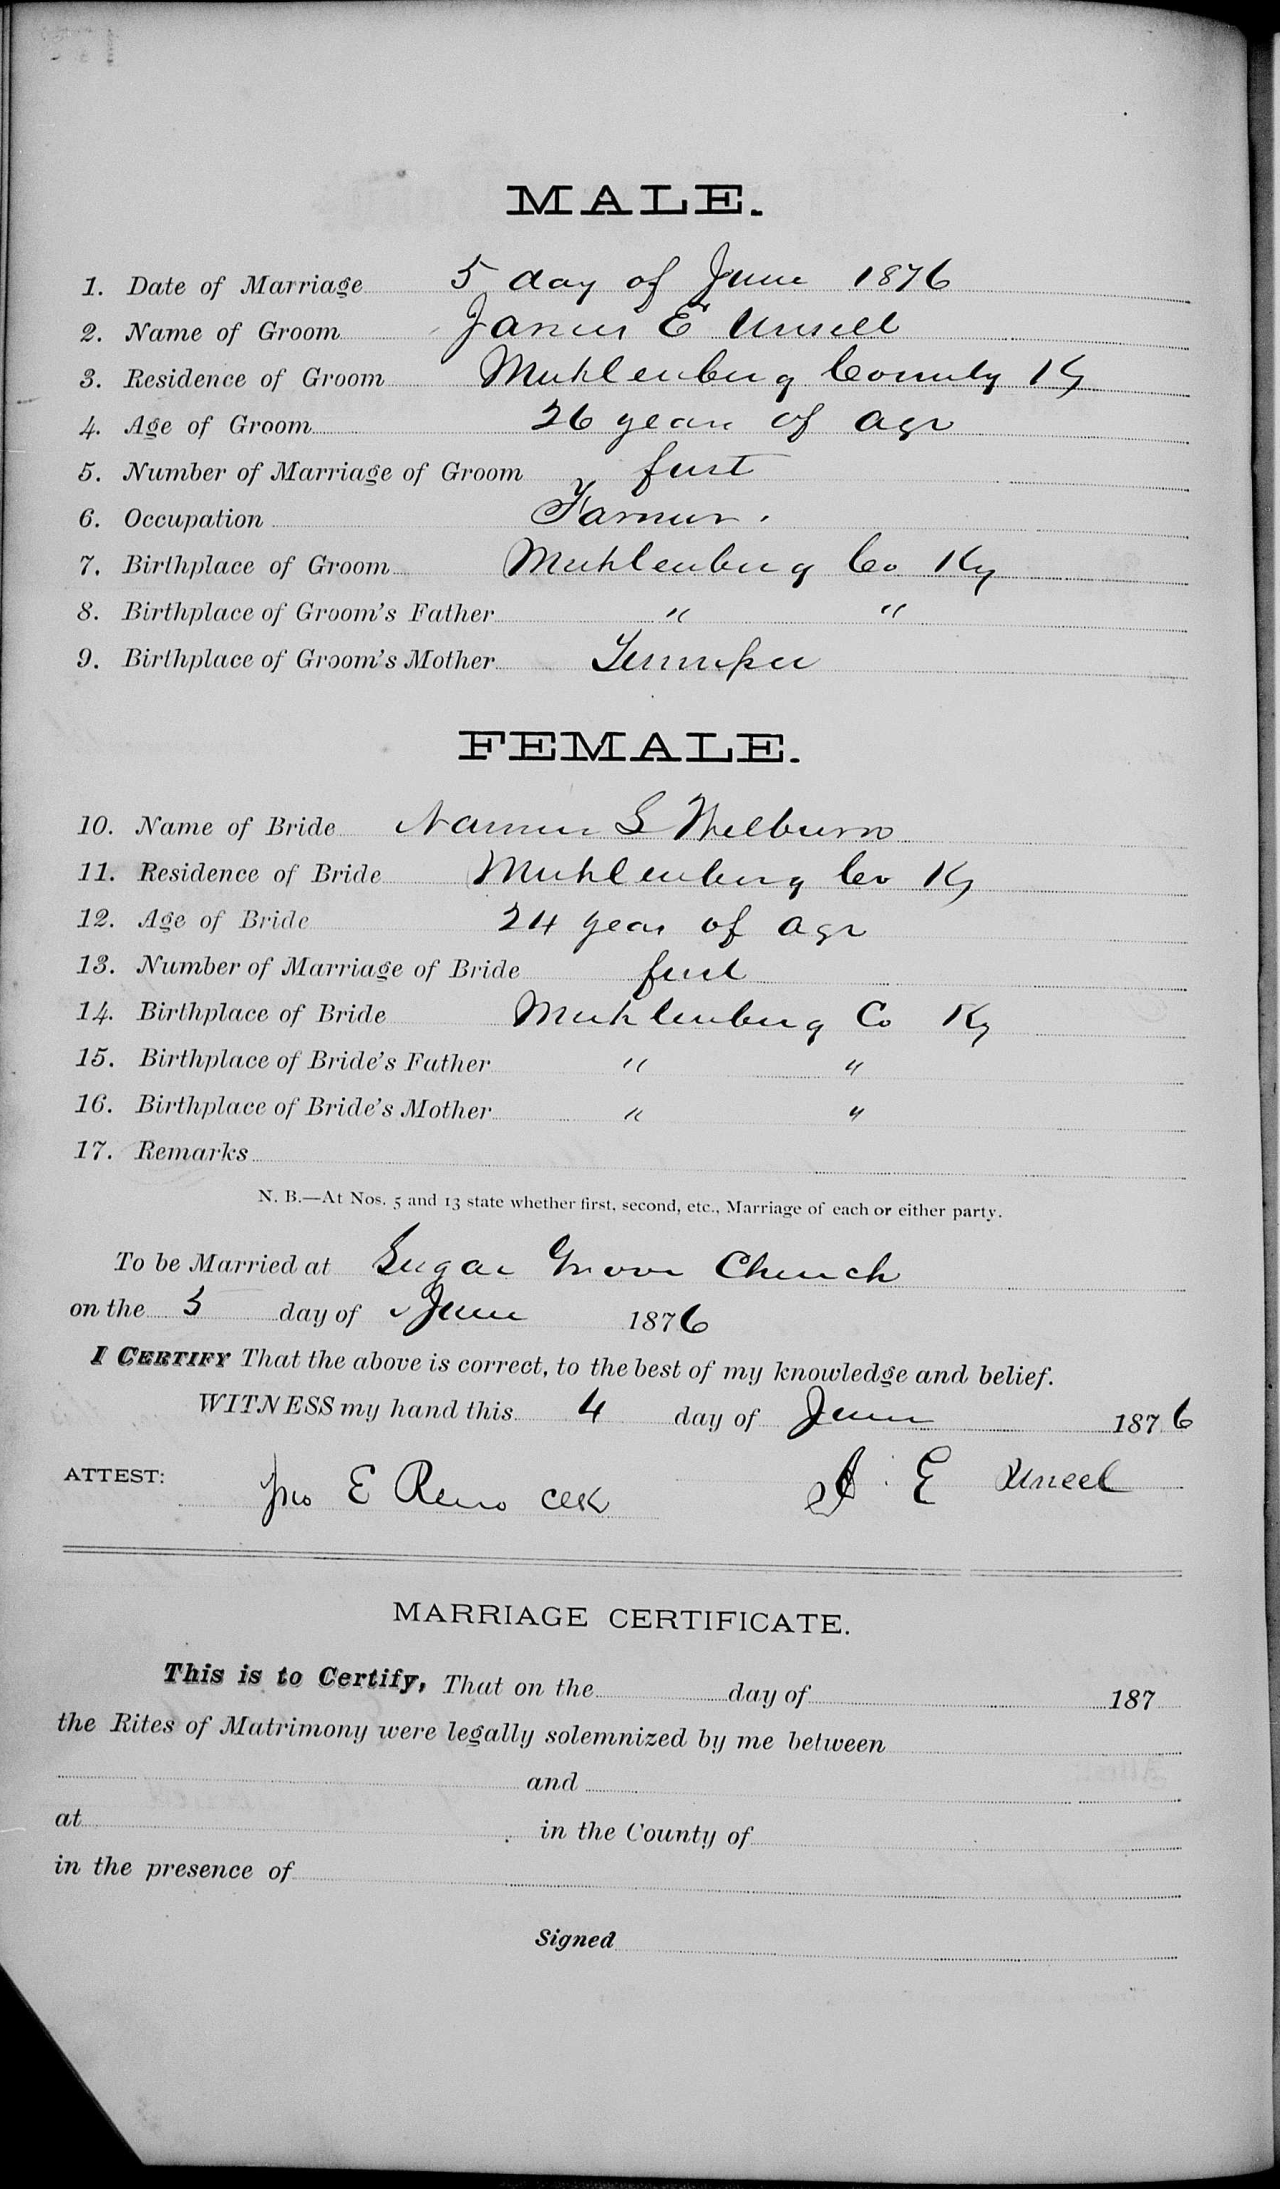 MALE.
1. Date of Marriage 5 day of June 1876
2. Name of Groom James E Unsell
3. Residence of Groom Muhlenburg County Ky
4. Age of Groom 26 years of age
5. Number of Marriage of Groom first
6. Occupation Farmer.
7. Birthplace of Groom Muhlenburg Co Ky
8. Birthplace of Groom's Father " "
9. Birthplace of Groom's Mother Tennessee
FEMALE.
10. Name of Bride S Welburn
11. Residence of Bride Muhlenburg Co Ky
12. Age of Bride 24 years of age
13. Number of Marriage of Bride first
14. Birthplace of Bride Muhlenburg Co Ky
15. Birthplace of Bride's Father " "
16. Birthplace of Bride's Mother " "
17. Remarks
N. B.—At Nos. 5 and 13 state whether first, second, etc., Marriage of each or either party.
To be Married at Sugar Grove Church
on the 5 day of June 1876
I CERTIFY That the above is correct, to the best of my knowledge and belief.
WITNESS my hand this 4 day of June 1876
ATTEST: Jno E Reno Clk J E Uncel
MARRIAGE CERTIFICATE.
This is to Certify, That on the day of 187
the Rites of Matrimony were legally solemnized by me between
and
at in the County of
in the presence of
Signed